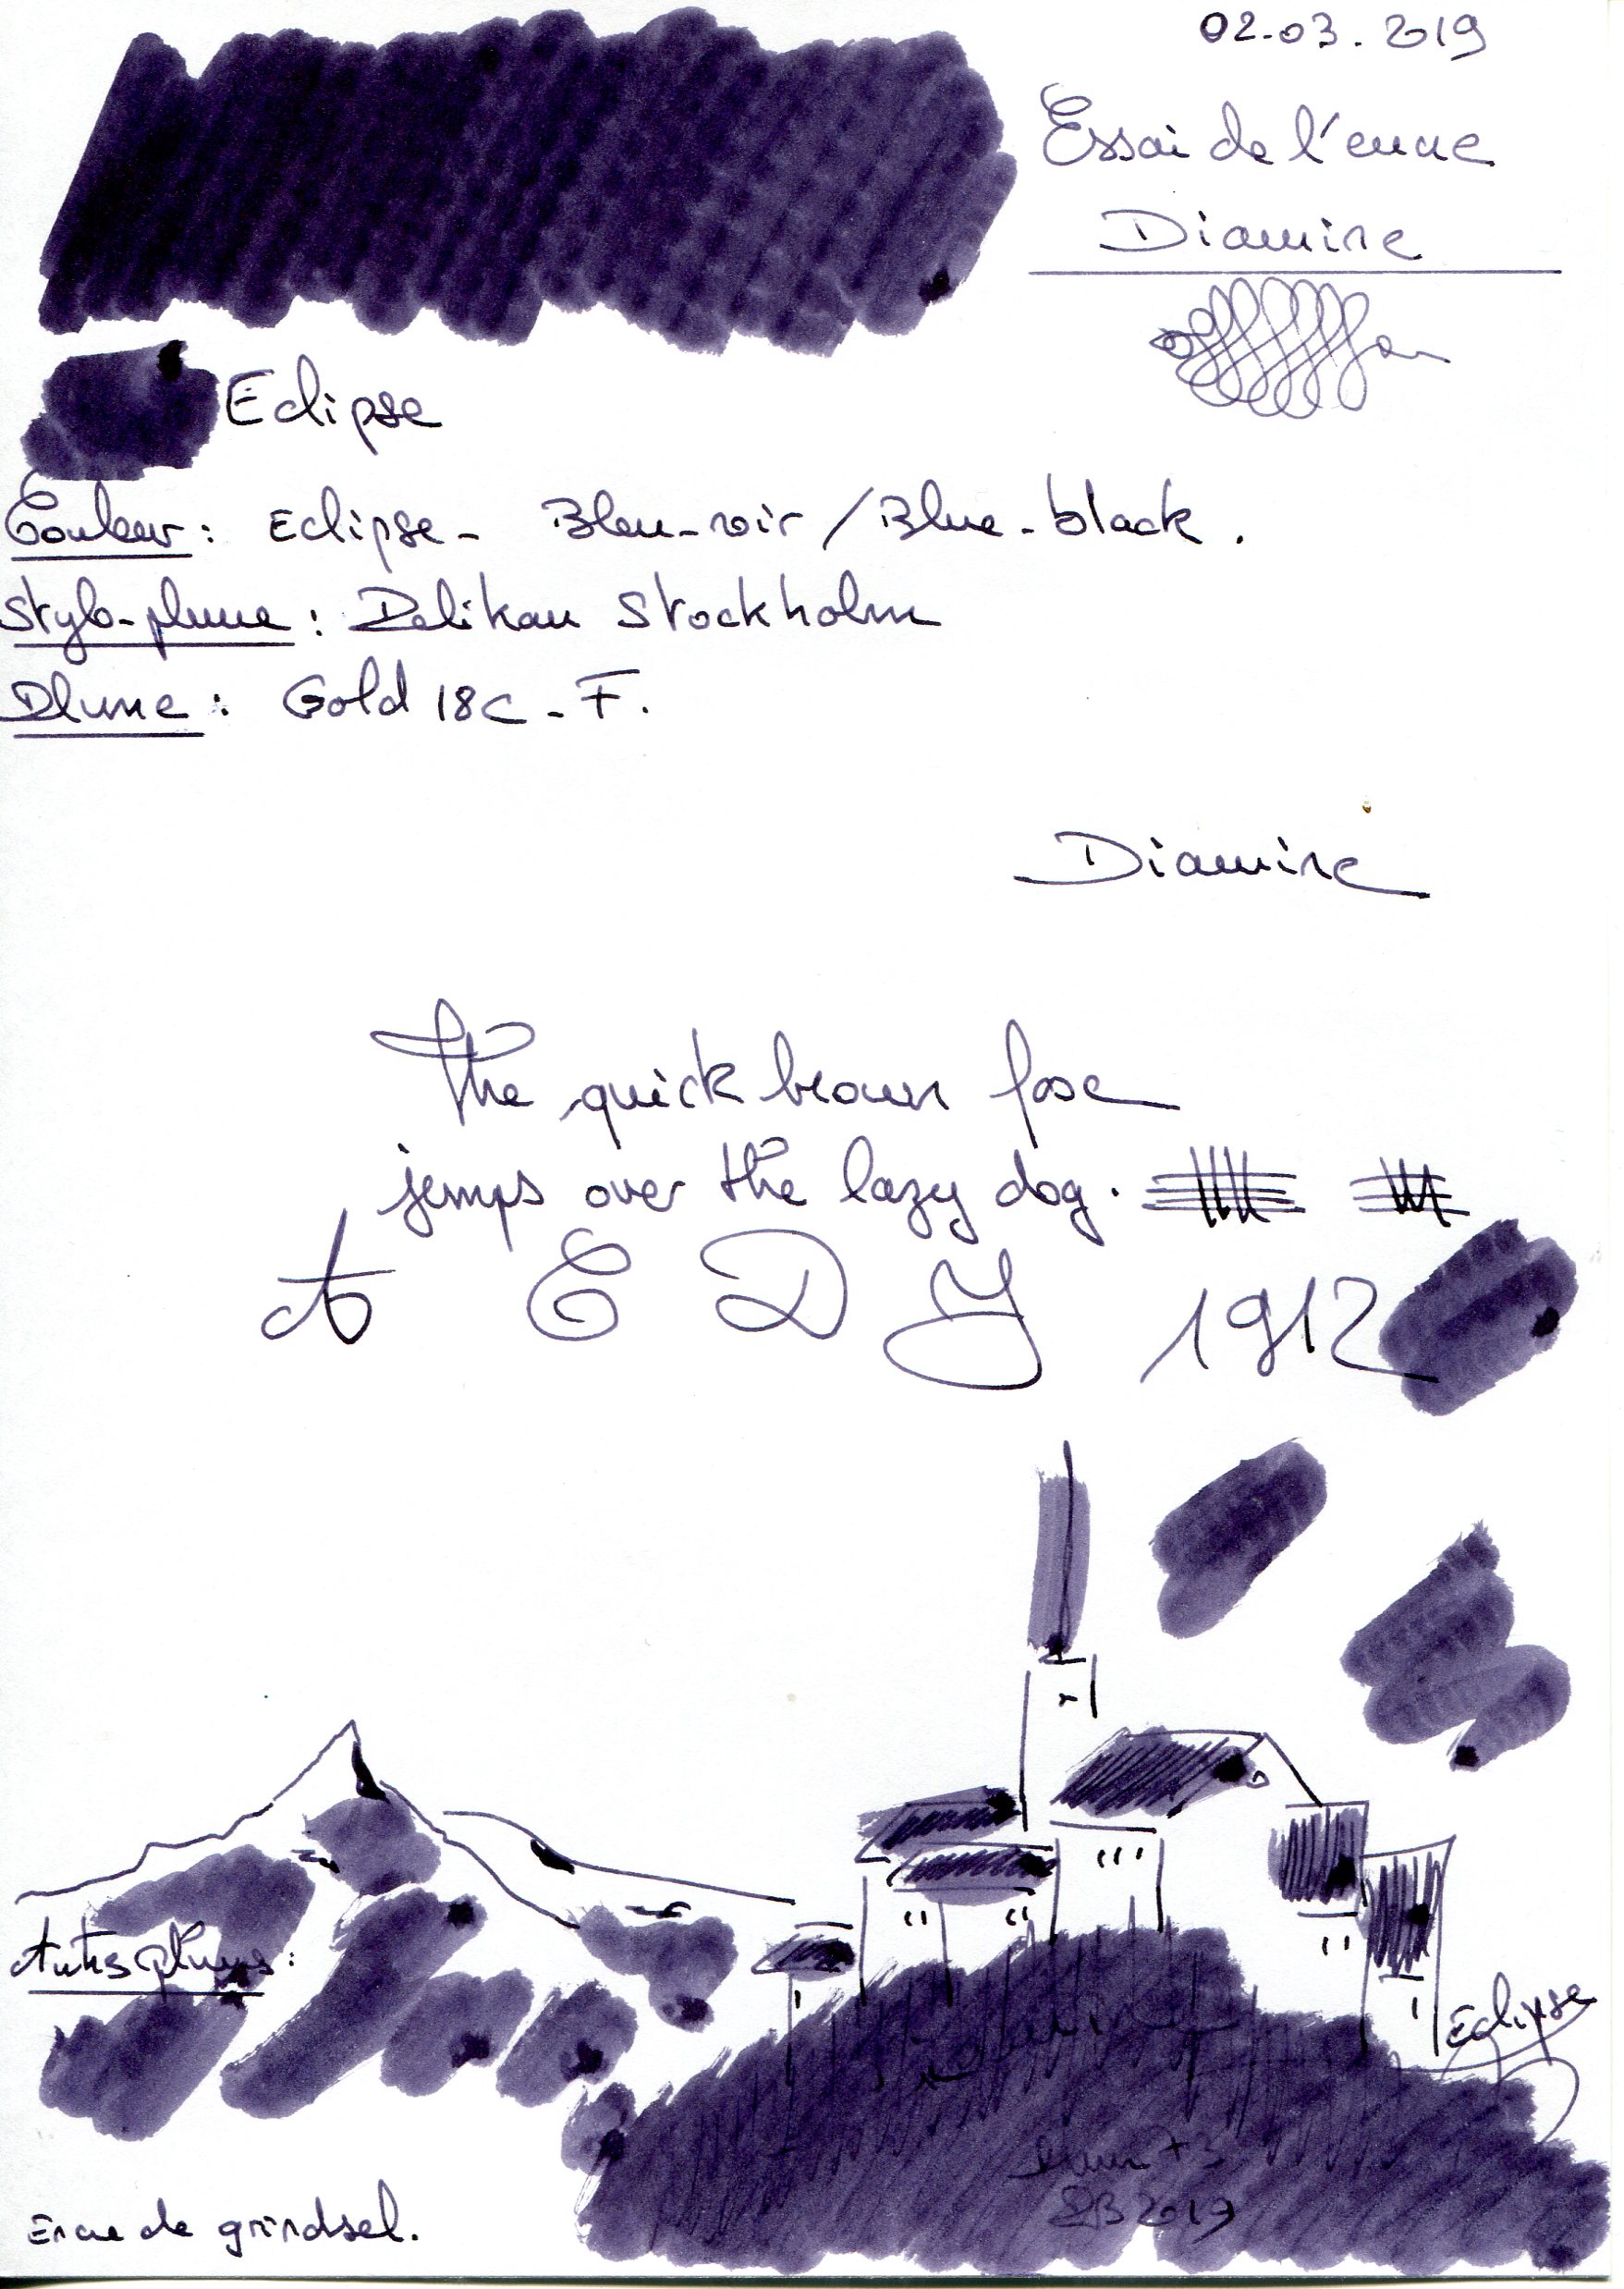 02.03.2019
Essai de l'encre
Diamine
Eclipse
Couleur : Eclipse - Bleu-noir / Blue-black.
Stylo-plume : Pelikan Stockholm
Plume : Gold 18c - F.
Diamine
The quick brown fox
jumps over the lazy dog.
A E D J 1912
Autres plumes :
Eclipse
2019
Encre de grindsel.